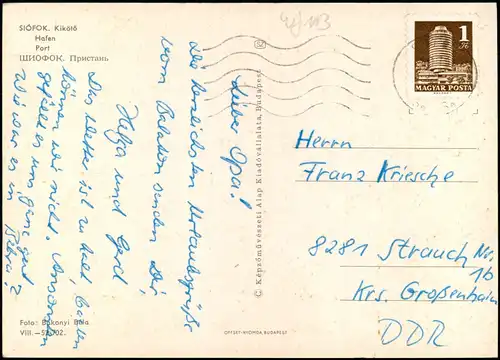 SIÓFOK. Kikötő
Hafen
Port
ШИОФОК. Пристань
Lieber Opa!
Die herzlichsten Urlaubsgrüße
vom Balaton senden Dir
Helga und Gerd
Das Wetter ist zu kalt, baden
können wir nicht. Ansonsten
gefällt es uns ganz gut.
Wie war es in
Foto: Bakonyi Béla
VIII.—
© Képzőművészeti Alap Kiadóvállalata, Budapest
OFFSET-NYOMDA, BUDAPEST
1
Ft
MAGYAR POSTA
Herrn
Franz Kriesche
8281 Strauch Nr.
1b
Krs. Großenhain
DDR